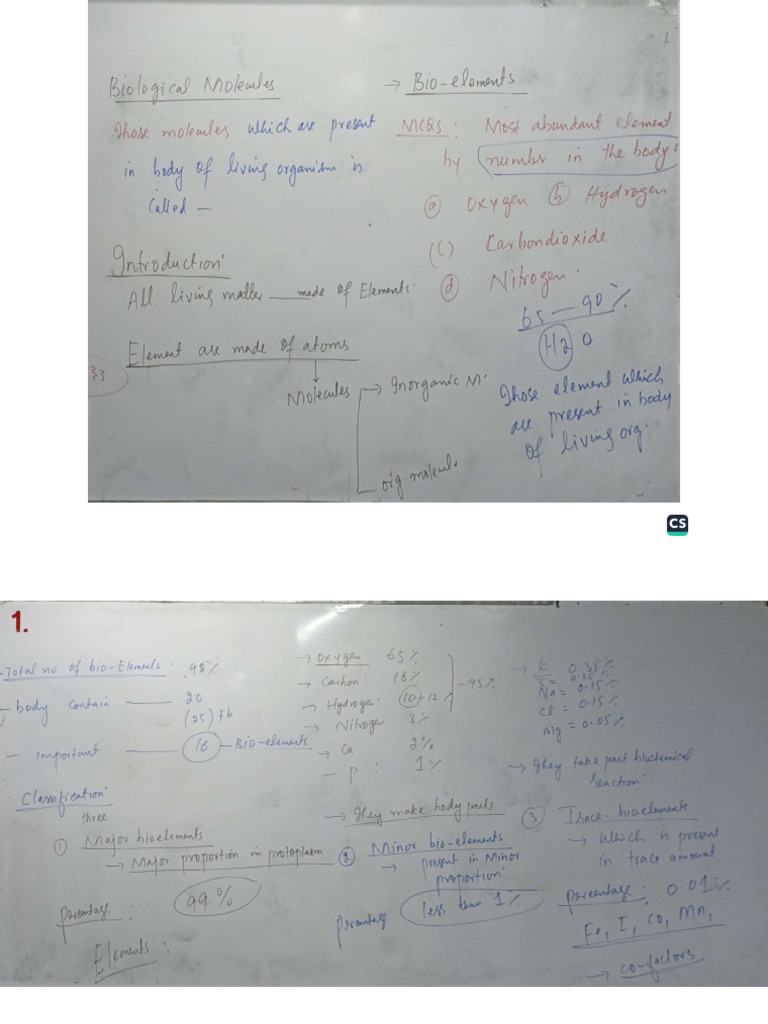 Biological Molecules
Those molecules which are present
in body of living organism is
Called —
Introduction:
All living matter ___ made of Elements.
Element are made of atoms
Molecules → Inorganic M.
org. molecul.
→ Bio-elements
MCQS : Most abundant element
by number in the body.
(a) Oxygen (b) Hydrogen
(c) Carbondioxide
(d) Nitrogen.
65 — 90 %
H2O
Those element which
are present in body
of living org.
CS
1.
- Total no of bio-Elements : 92%
- body contain — 20
(25) Fb
- Important — 16 - Bio-elements
Classification:
three
① Major bioelements
→ Major proportion in protoplasm
percentage : 99%
Elements :
→ Oxygen 65%
→ Carbon: 18%
→ Hydrogen: 10-12%
→ Nitrogen 3%
→ Ca 2%
- P : 1%
95%
→ They make body parts
② Minor bio-elements
→ present in Minor
proportion.
percentage less than 1%
→ K 0.35%
S = 0.25%
Na = 0.15%
Cl = 0.15%
Mg = 0.05%
→ They take part biochemical
reaction.
③ Trace-bioelements
→ which is present
in trace amount
percentage : 0.01%
Fe, I, Co, Mn,
→ co-factors